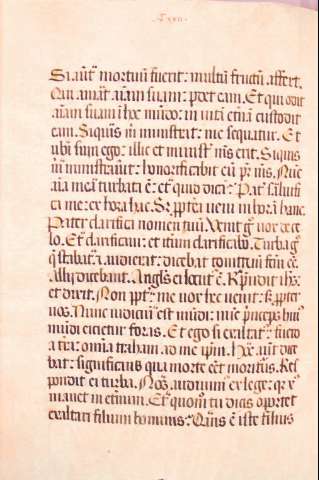 Si aut̃ mortuum fuerit: multũ fructũ affert.
Qui amat aĩam suam: p̱det eam. Et qui odit
aĩam suam ĩ hoc mũdo: in uitã etñã custodit
eam. Siquis m̃ ministrat: me sequatur. Et
ubi sum ego: illic et minist̃ m̃s erit. Siquis
m̃ ministrauit: honorificabit eũ pr̃ m̃s. Nũc
aĩa mea turbata ẽ: et quid dicã? Pat̃ saluifi
ca me: ex hora hac. Sꝫ ppt̃ea ueni in horã hanc.
Pater clarifica nomen tuũ. Venit g̊ uox de ce
lo. Et clarificaui: et itũm clarificabo. Turba g̊
q̃ stabat ⁊ audierat: dicebat tonitruũ factũ eẽ.
Alii dicebant. Angl̃s ei locut̃ ẽ. Rñdit ihs̃:
et dixit. Non ppt̃ me uox hec uenit: sꝫ ppter
uos. Nunc iudiciũ est mũdi: nũc p̃nceps hui̾
mũdi eicietur foras. Et ego si exaltat̾ fuero
a t̃ra: omĩa traham ad me ip̃m. Hoc aut̃ dice
bat: significans qua morte eẽt moritur̾. Res
pondit ei turba. Nos audiuim̾ ex lege: qꝛ xp̃s
manet in et̃num. Et quom̊ tu dicis oportet
exaltari filium hominis: Quis ẽ iste filius